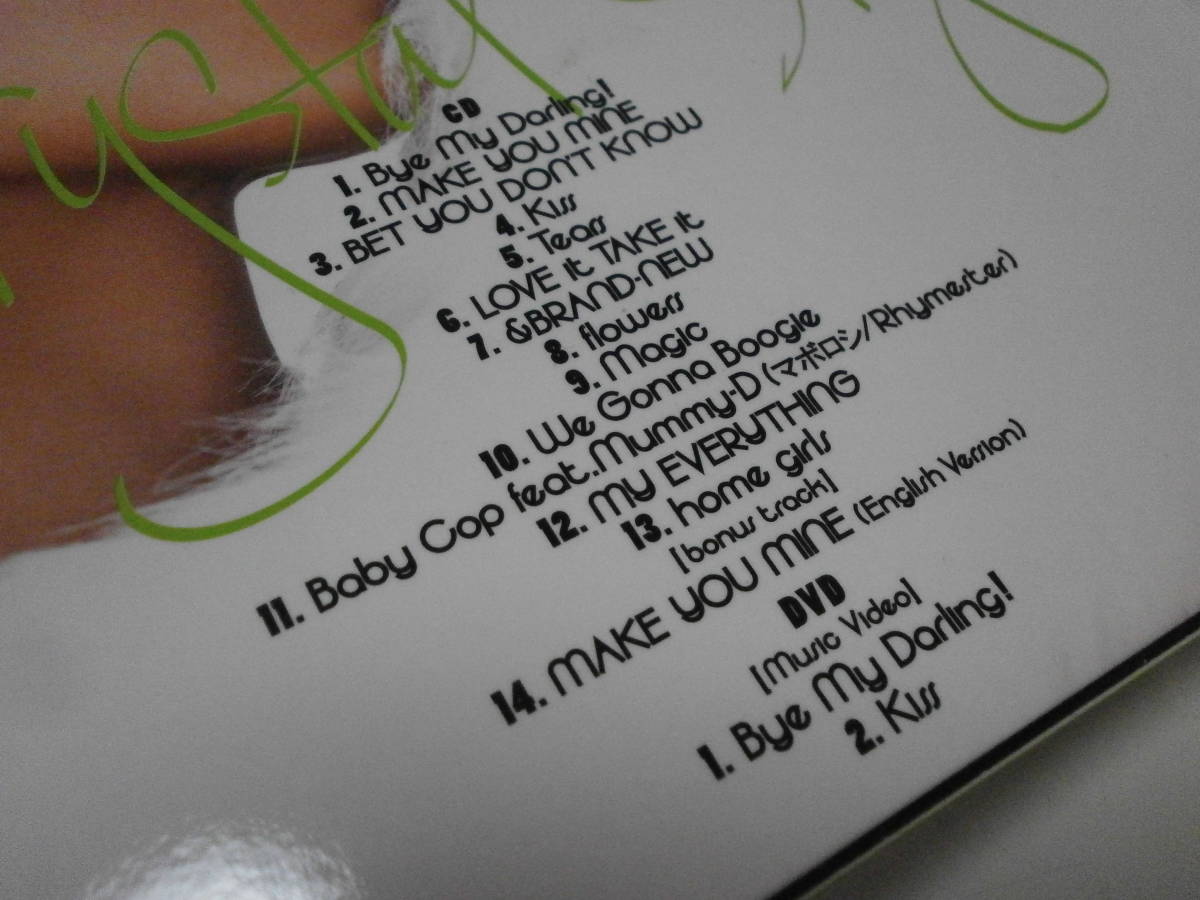 CD
1. Bye My Darling!
2. MAKE YOU MINE
3. BET YOU DON'T KNOW
4. Kiss
5. Tears
6. LOVE It TAKE It
7. &BRAND-NEW
8. flowers
9. Magic
10. We Gonna Boogie
11. Baby Cop feat.Mummy-D (マボロシ/Rhymester)
12. MY EVERYTHING
13. home girls
[bonus track]
14. MAKE YOU MINE (English Version)
DVD
[Music Video]
1. Bye My Darling!
2. Kiss